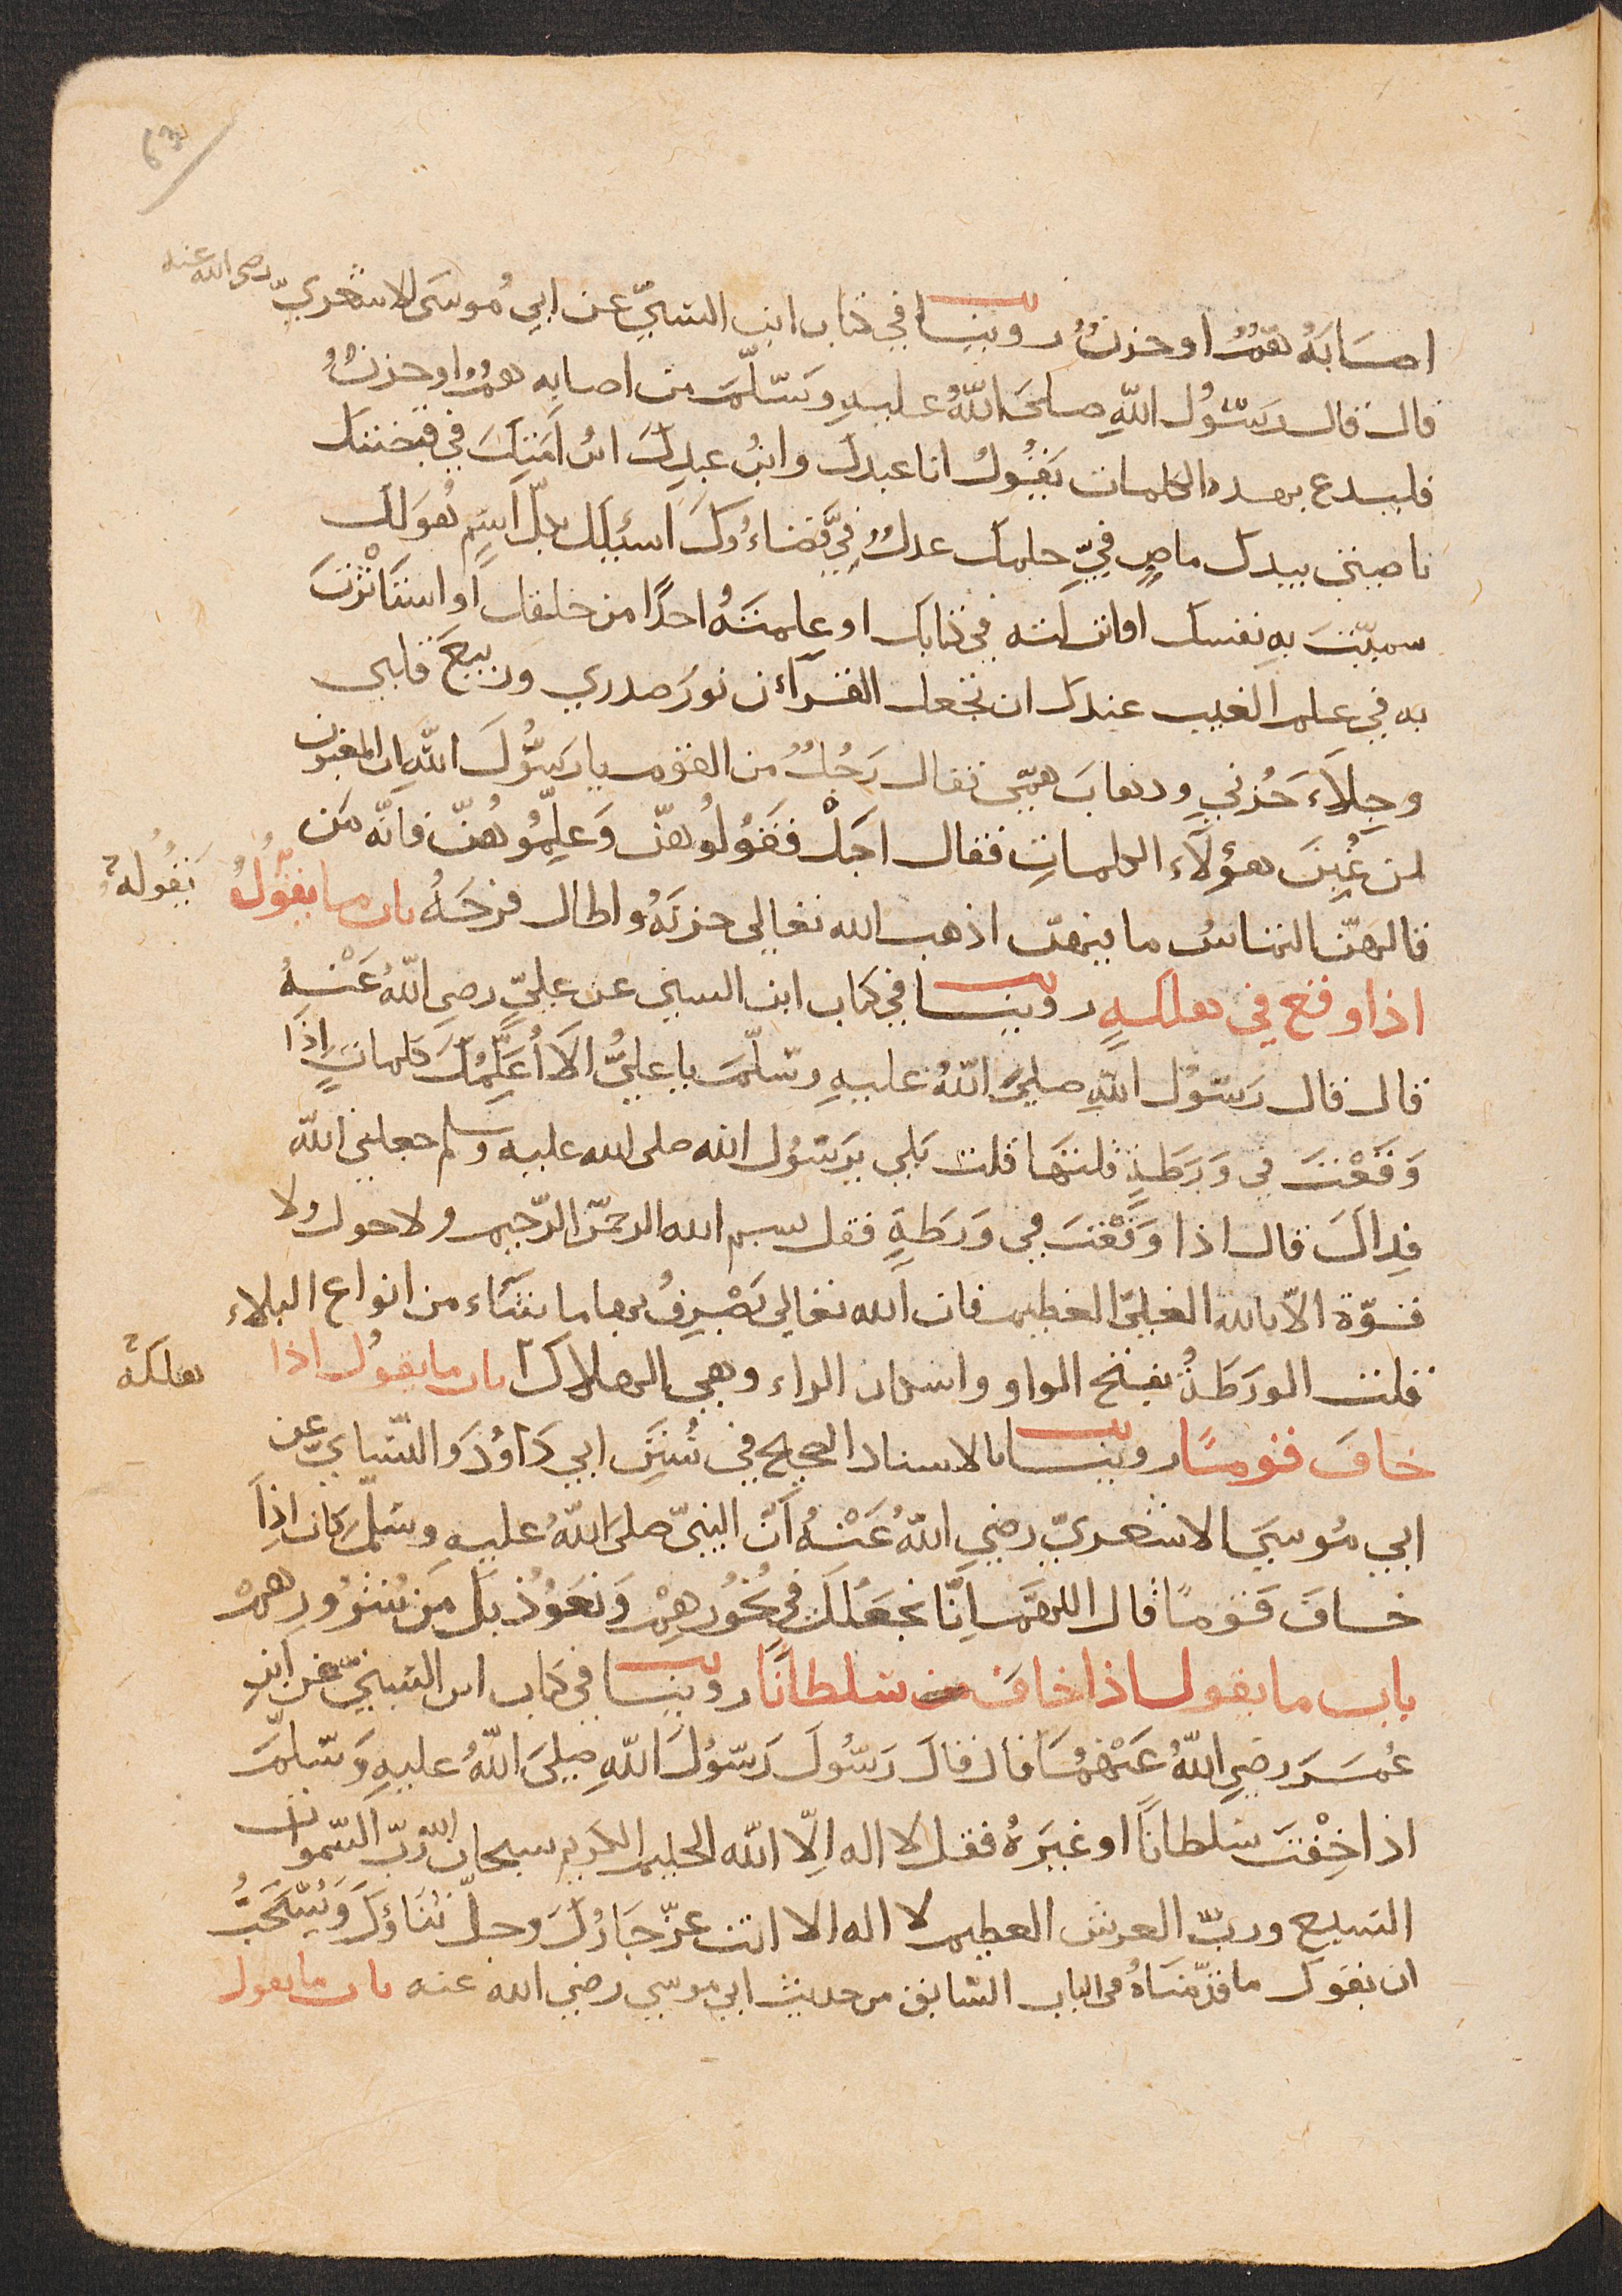 اصابه همّ او حزن روينا في كتاب ابن السنيّ عن ابي موسى الاشعريّ رضي الله عنه
قال قال رسول الله صلى الله عليه وسلّم من اصابه همّ او حزن
فليدع بهذه الكلمات يقول انا عبدك وابن عبدك ابن امتك في قبضتك
ناصيتي بيدك ماضٍ فيّ حكمك عدل فيّ قضاءوك اسئلك بكلّ اسم هو لك
سميّت به نفسك او انزلته في كتابك او علمته احدًا من خلقك او استأثرت
به في علم الغيب عندك ان تجعل القرآن نور صدري وربيع قلبي
وجلآء حزني وذهاب همّي فقال رجل من القوم يا رسول الله ان المغبون
لمن غبن هؤلآء الكلمات فقال اجل فقولوهنّ وعلّموهنّ فانّه من
قالهنّ التماس ما فيهنّ اذهب الله تعالى حزنه واطال فرحه باب ما يقول
يقوله
اذا وقع في هلكةٍ روينا في كتاب ابن السني عن عليّ رضي الله عنه
قال قال رسول الله صلى الله عليه وسلّم يا عليّ الا أعلّمك كلمات اذا
وقعت في ورطة قلتها قلت بلى يرسول الله صلى الله عليه وسلم جعلني الله
فداك قال اذا وقعت في ورطة فقل بسم الله الرحمن الرّحيم ولا حول ولا
قوّة الّا بالله العليّ العظيم فان الله تعالى يصرف بها ما شآء من انواع البلاء
قلت الورطة بفتح الواو واسكان الراء وهي الهلاك باب ما يقول اذا
هلكة
خاف قومًا روينا بالاسناد الصحيح في سنن ابي داؤد والنسّاي عن
ابي موسى الاشعريّ رضي الله عنه انّ النبيّ صلى الله عليه وسلّم كان اذا
خاف قومًا قال اللهمّ انّا نجعلك في نحورهم ونعوذ بك من شرورهم
باب ما يقول اذا خاف سلطانًا روينا في كتاب ابن السنيّ عن ابن
عمر رضي الله عنهما قال قال رسول رسول الله صلى الله عليه وسلّم
اذا خفت سلطانًا او غيره فقل لا اله الّا الله الحليم الكريم سبحان الله ربّ السّموات
السبع وربّ العرش العظيم لا اله الا انت عزّ جارك وجلّ ثناؤك ويستحبّ
ان يقول ما قدّمناه في الباب السّابق من حديث ابي موسى رضي الله عنه باب ما يقول